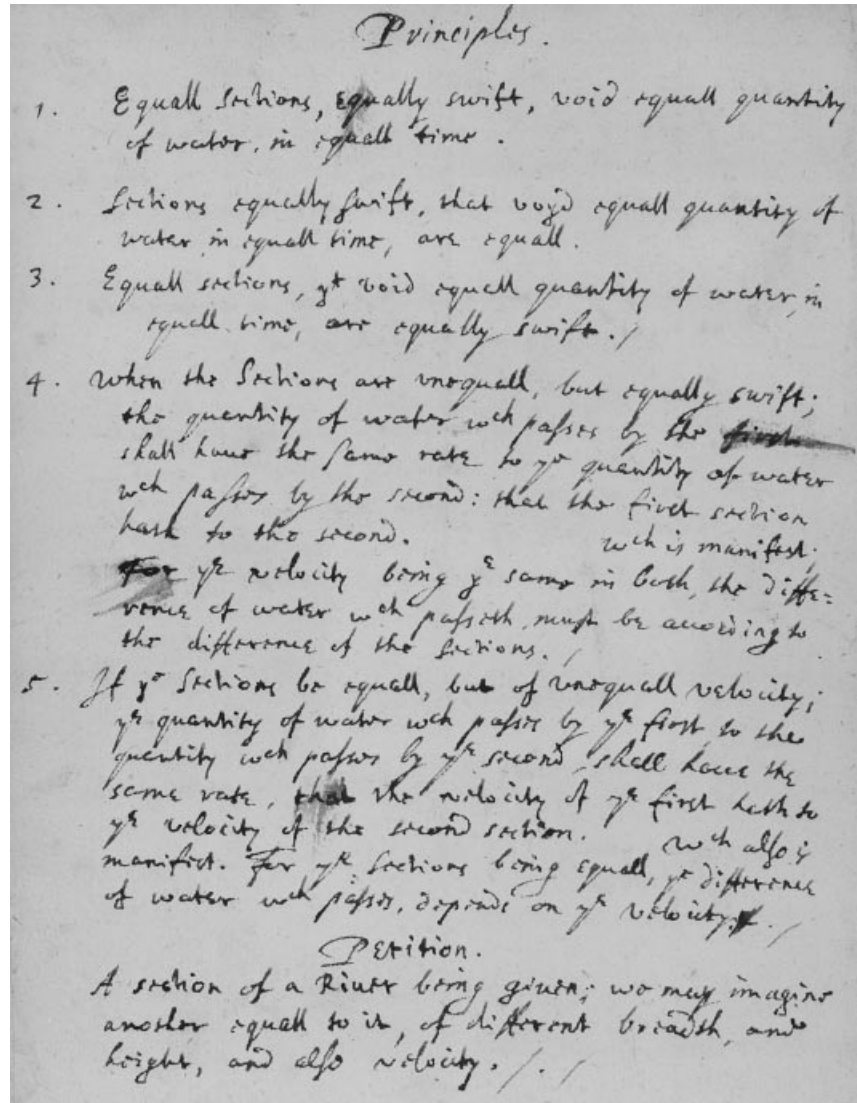 Principles.
1. Equall Sections, equally swift, void equall quantity
of water, in equall time.
2. Sections equally swift, that voyd equall quantity of
water in equall time, are equall.
3. Equall sections, yt void equall quantity of water, in
equall time, are equally swift./
4. When the Sections are vnequall, but equally swift;
the quantity of water wch passes by the first
shall haue the same rate to ye quantity of water
wch passes by the second: that the first section
hath to the second. wch is manifest.
For ye velocity being ye same in both, the diffe=
rence of water wch passeth, must be acording to
the difference of the Sections./
5. If ye Sections be equall, but of vnequall velocity;
ye quantity of water wch passes by ye first, to the
quantity wch passes by ye second, shall haue the
same rate, that the velocity of ye first hath to
ye velocity of the second section. wch also is
manifest. For ye Sections being equall, ye difference
of water wch passes, depends on ye velocity./
Petition.
A section of a Riuer being giuen; we may imagine
another equall to it, of different breadth, and
height, and also velocity./././